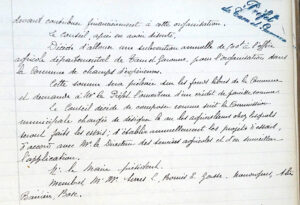 devant contribuer financièrement à cette organisation.
Le Conseil, après en avoir discuté,
Décide d'allouer une subvention annuelle de à l'office
agricole départemental de Tarn-et-Garonne, pour l'organisation dans
la commune de champs d'expériences.
Cette somme sera prélevée sur les fonds libres de la Commune
et demande à Mr le Préfet l'ouverture d'un crédit de pareille somme
Le Conseil décide de composer comme suit la Commission
municipale chargée de désigner le ou les agriculteurs chez lesquels
seront faits les essais, d'établir annuellement les projets d'essais,
d'accord avec Mr le Directeur des services agricoles et d'en surveiller
l'application.
Mr le Maire président.
membres Mrs MM
Préfet
de Tarn & Garonne